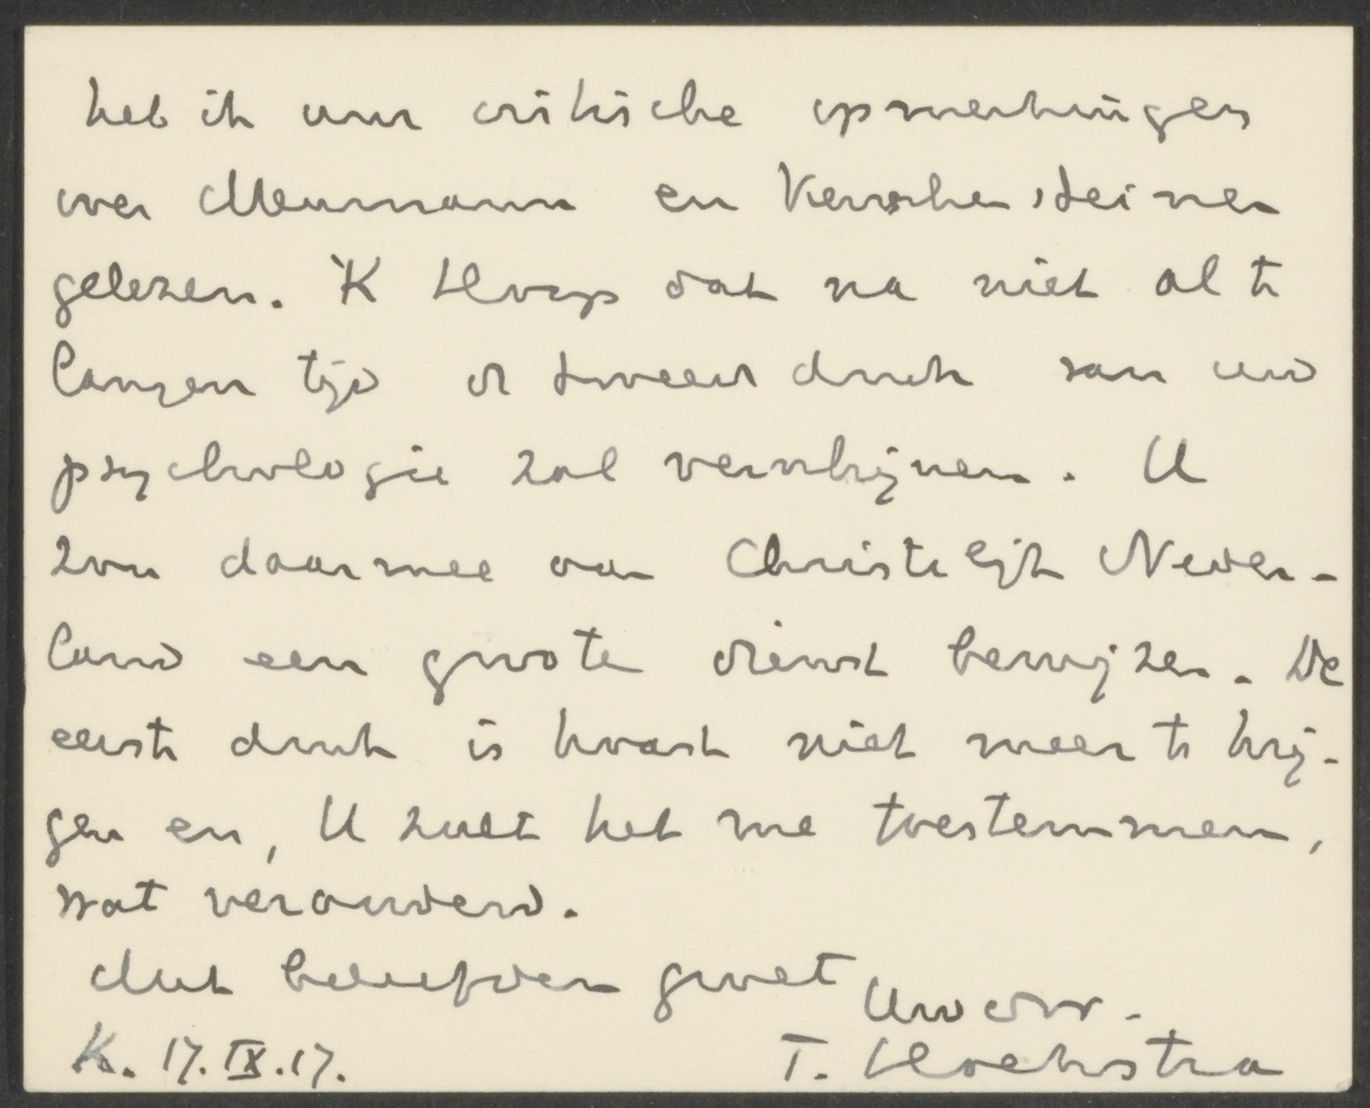 heb ik uw critische opmerkingen
over Meumann en Kerschensteiner
gelezen. 'K Hoop dat na niet al te
langen tijd de tweede druk van uw
psychologie zal verschijnen. U
zou daarmee aan Christelijk Neder-
land een groote dienst bewijzen. De
eerste druk is haast niet meer te krij-
gen en, U zult het me toestemmen,
wat verouderd.
Met beleefden groet Uw dw.
K. 17.IX.17. T. Hoekstra